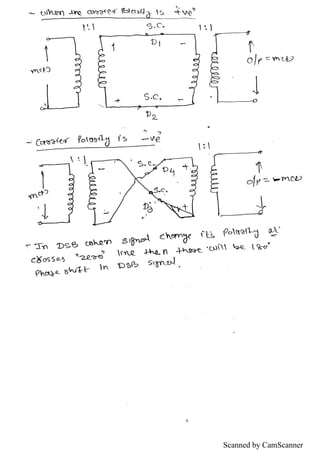 - when the carrier Polarity is +ve"
1:1
S.C.
1:1
D1
+
-
m(t)
o/p = m(t)
+
S.C.
-
D2
- Carrier Polarity is "-ve"
1:1
1:1
S.C.
+
D4
-
m(t)
S.C.
o/p = -m(t)
D3
-
+
- In DSB when signal change its Polarity at
crosses "zero" line then there will be 180°
Phase shift in DSB signal.
Scanned by CamScanner